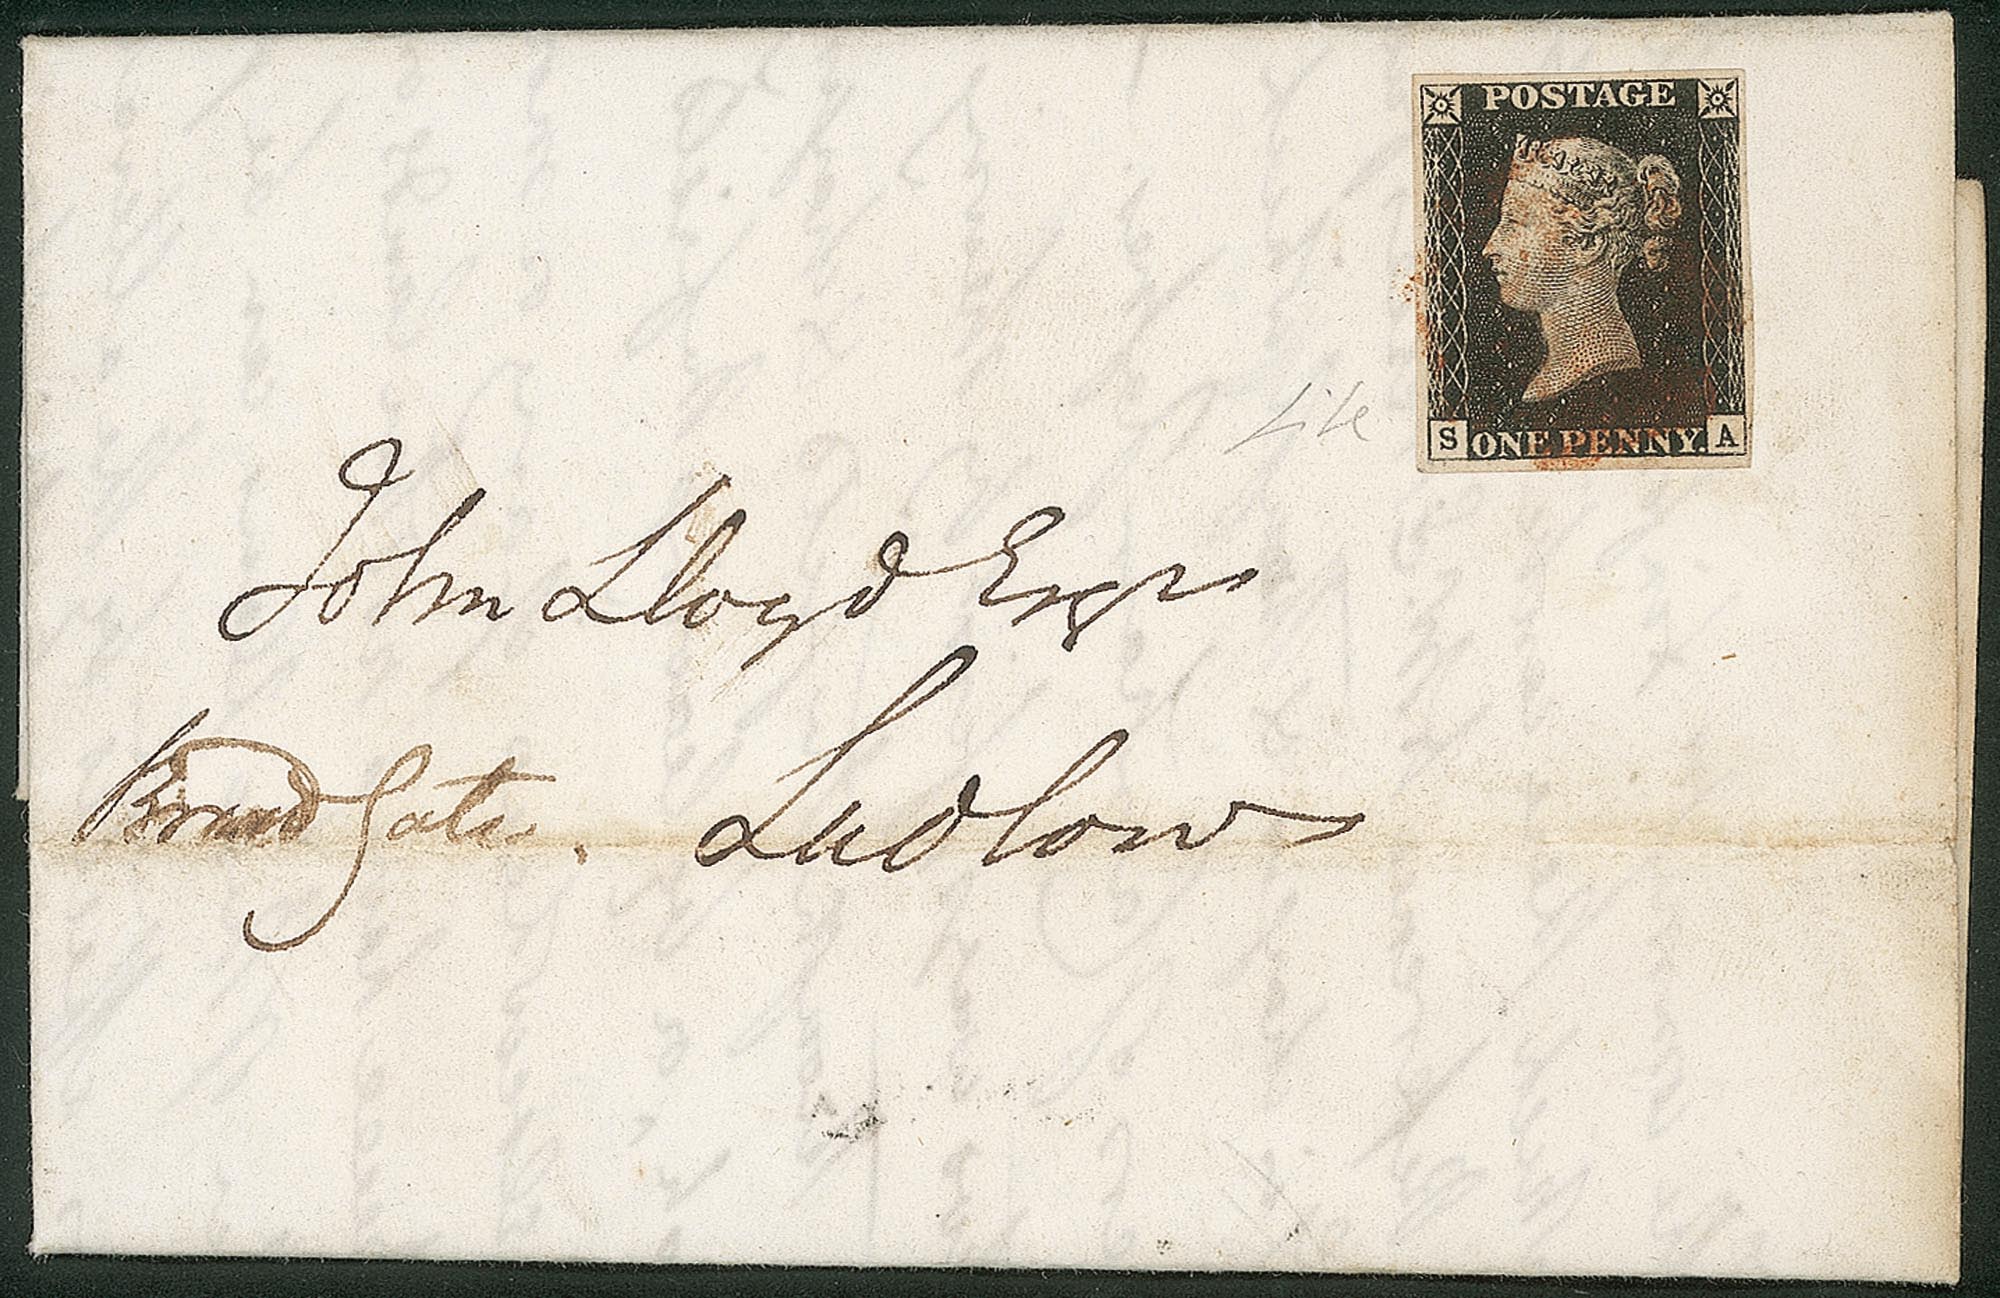 POSTAGE
S ONE PENNY. A
John Lloyd Esqr
Broad Gate. Ludlow